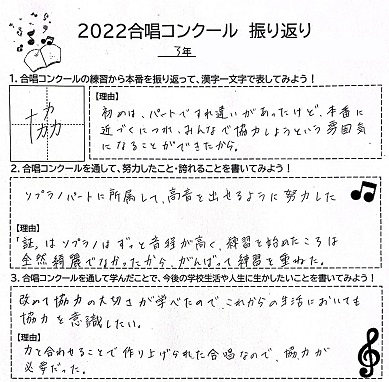 2022合唱コンクール 振り返り
3年
1. 合唱コンクールの練習から本番を振り返って、漢字一文字で表してみよう！
協
【理由】
初めは、パートですれ違いがあったけど、本番に
近づくにつれ、みんなで協力しようという雰囲気
になることができたから。
2. 合唱コンクールを通して、努力したこと・誇れることを書いてみよう！
ソプラノパートに所属して、高音を出せるように努力した
【理由】
「証」はソプラノはずっと音程が高く、練習を始めたころは
全然綺麗でなかったから、がんばって練習を重ねた。
3. 合唱コンクールを通して学んだことで、今後の学校生活や人生に生かしたいことを書いてみよう！
改めて協力の大切さが学べたので、これからの生活においても
協力を意識したい。
【理由】
力を合わせることで作り上げられた合唱なので、協力が
必要だった。